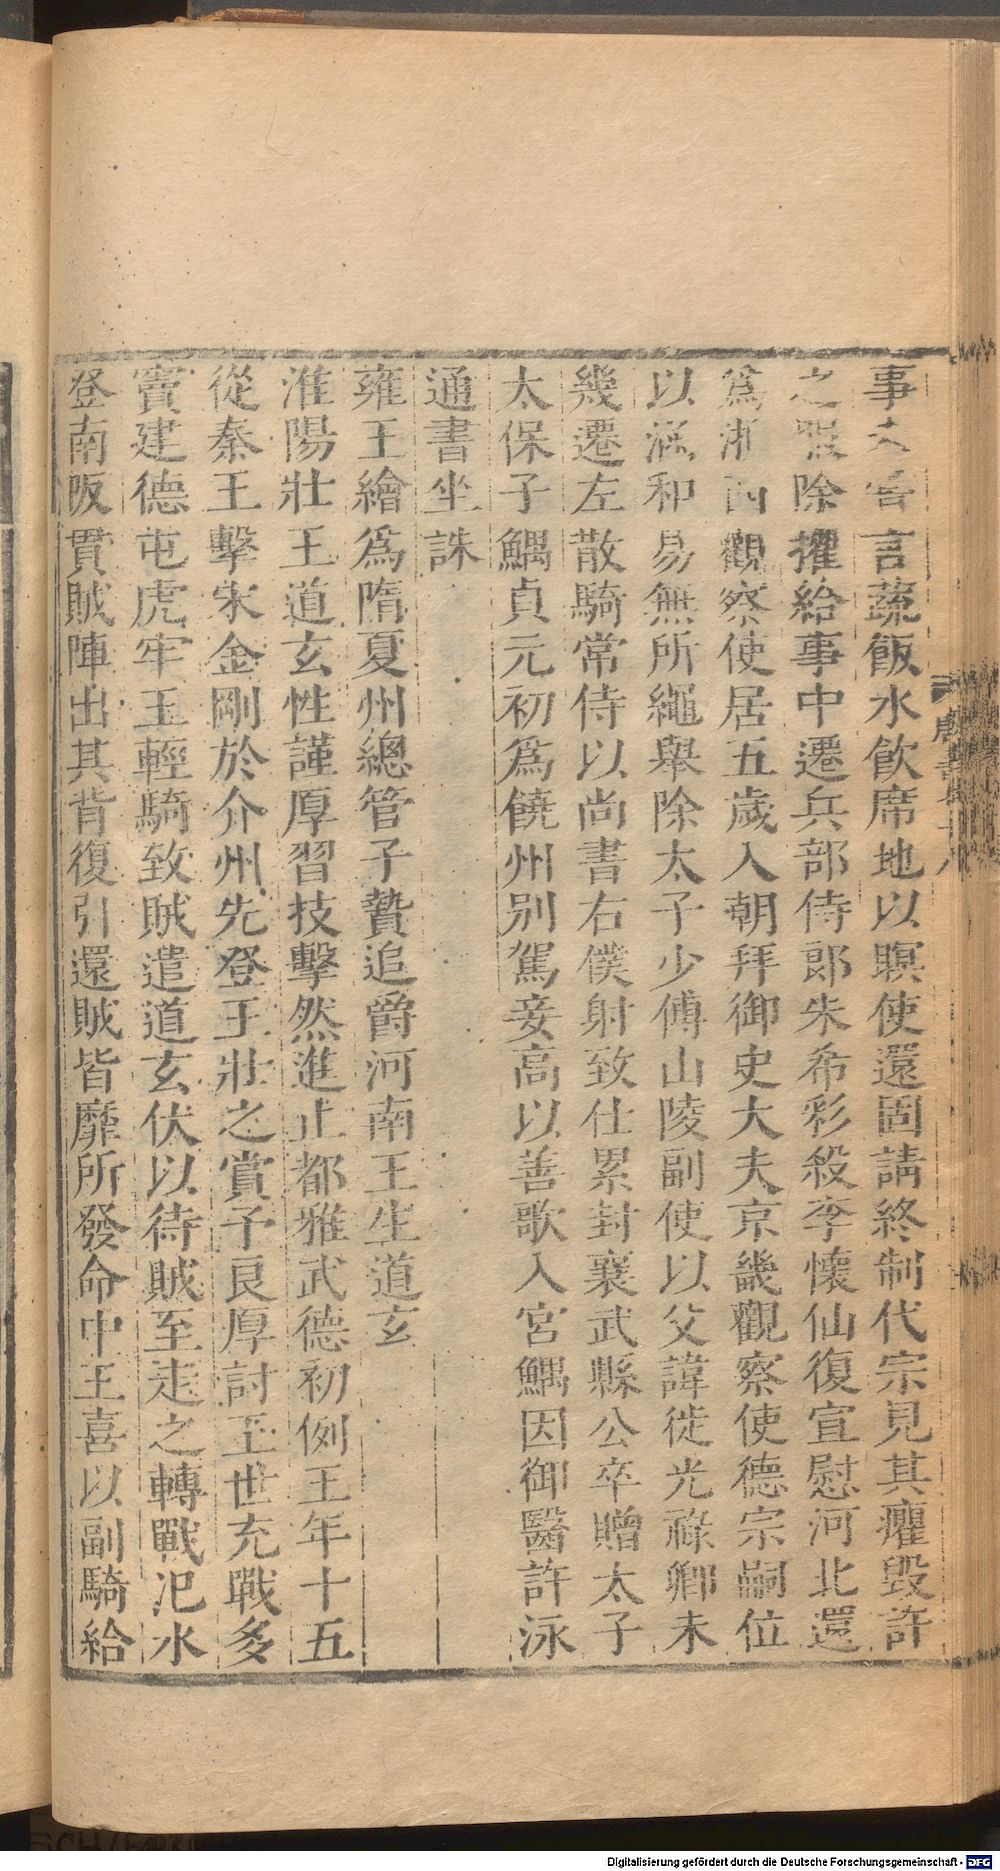 事未嘗言蔬飯水飲席地以瞑使還固請終制代宗見其癯毀許
之服除擢給事中遷兵部侍郎朱希彩殺李懷仙復宣慰河北還
為浙西觀察使居五歲入朝拜御史大夫京畿觀察使德宗嗣位
以涵和易無所繩舉除太子少傅山陵副使以父諱徙光祿卿未
幾遷左散騎常侍以尚書右僕射致仕累封襄武縣公卒贈太子
太保子鰅貞元初爲饒州別駕妾高以善歌入宮鰅因御醫許泳
通書坐誅
雍王繪爲隋夏州總管子贄追爵河南王生道玄
淮陽壯王道玄性謹厚習技擊然進止都雅武德初例王年十五
從秦王擊宋金剛於介州先登王壯之賞予良厚討王世充戰多
竇建德屯虎牢王輕騎致賊遣道玄伏以待賊至走之轉戰汜水
登南阪貫賊陣出其背復引還賊皆靡所發命中王喜以副騎給
Digitalisierung gefördert durch die Deutsche Forschungsgemeinschaft - DFG